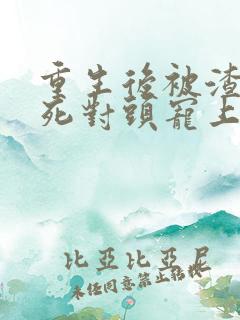 重生後被渣
死對頭寵上
比亞比亞尼
未任同意禁止轉載